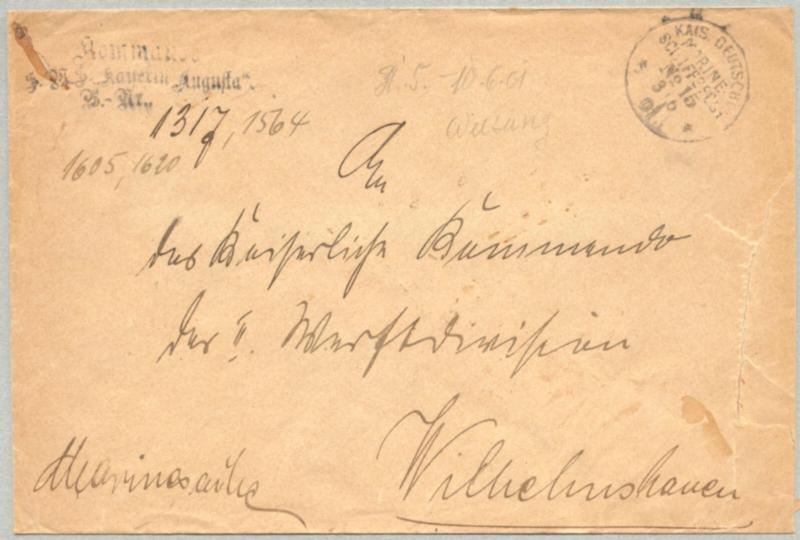 Kommando
S. M. S. "Kaiserin Augusta".
B.-Nr.
1317, 1564
1605, 1620
10.6.01
KAIS. DEUTSCHE
MARINE-
SCHIFFSPOST
No 15
An
das Kaiserliche Kommando
der II. Werftdivision
Wilhelmshaven
Marinesache